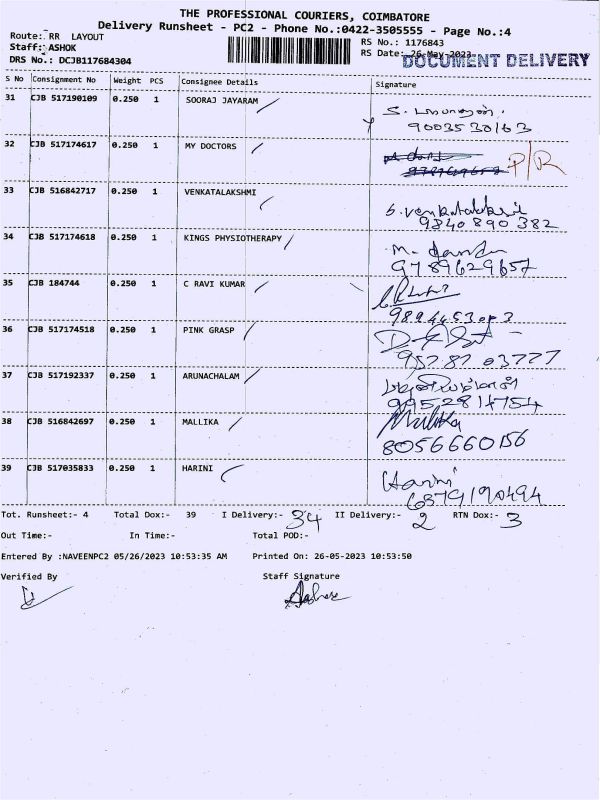 THE PROFESSIONAL COURIERS, COIMBATORE
Delivery Runsheet - PC2 - Phone No.:0422-3505555 - Page No.:4
Route: RR LAYOUT
Staff: ASHOK
DRS No.: DCJB117684304
RS No.: 1176843
RS Date: 26-May-2023
DOCUMENT DELIVERY
S No Consignment No Weight PCS Consignee Details Signature
31 CJB 517190109 0.250 1 SOORAJ JAYARAM
9003530163
32 CJB 517174617 0.250 1 MY DOCTORS P/R
33 CJB 516842717 0.250 1 VENKATALAKSHMI S. Venkatalakshmi
9840890382
34 CJB 517174618 0.250 1 KINGS PHYSIOTHERAPY
9789629657
35 CJB 184744 0.250 1 C RAVI KUMAR
36 CJB 517174518 0.250 1 PINK GRASP
95787 03777
37 CJB 517192337 0.250 1 ARUNACHALAM
9952814754
38 CJB 516842697 0.250 1 MALLIKA Mallika
8056660156
39 CJB 517035833 0.250 1 HARINI Harini
6379190494
Tot. Runsheet:- 4 Total Dox:- 39 I Delivery:- 34 II Delivery:- 2 RTN Dox:- 3
Out Time:- In Time:- Total POD:-
Entered By :NAVEENPC2 05/26/2023 10:53:35 AM Printed On: 26-05-2023 10:53:50
Verified By Staff Signature